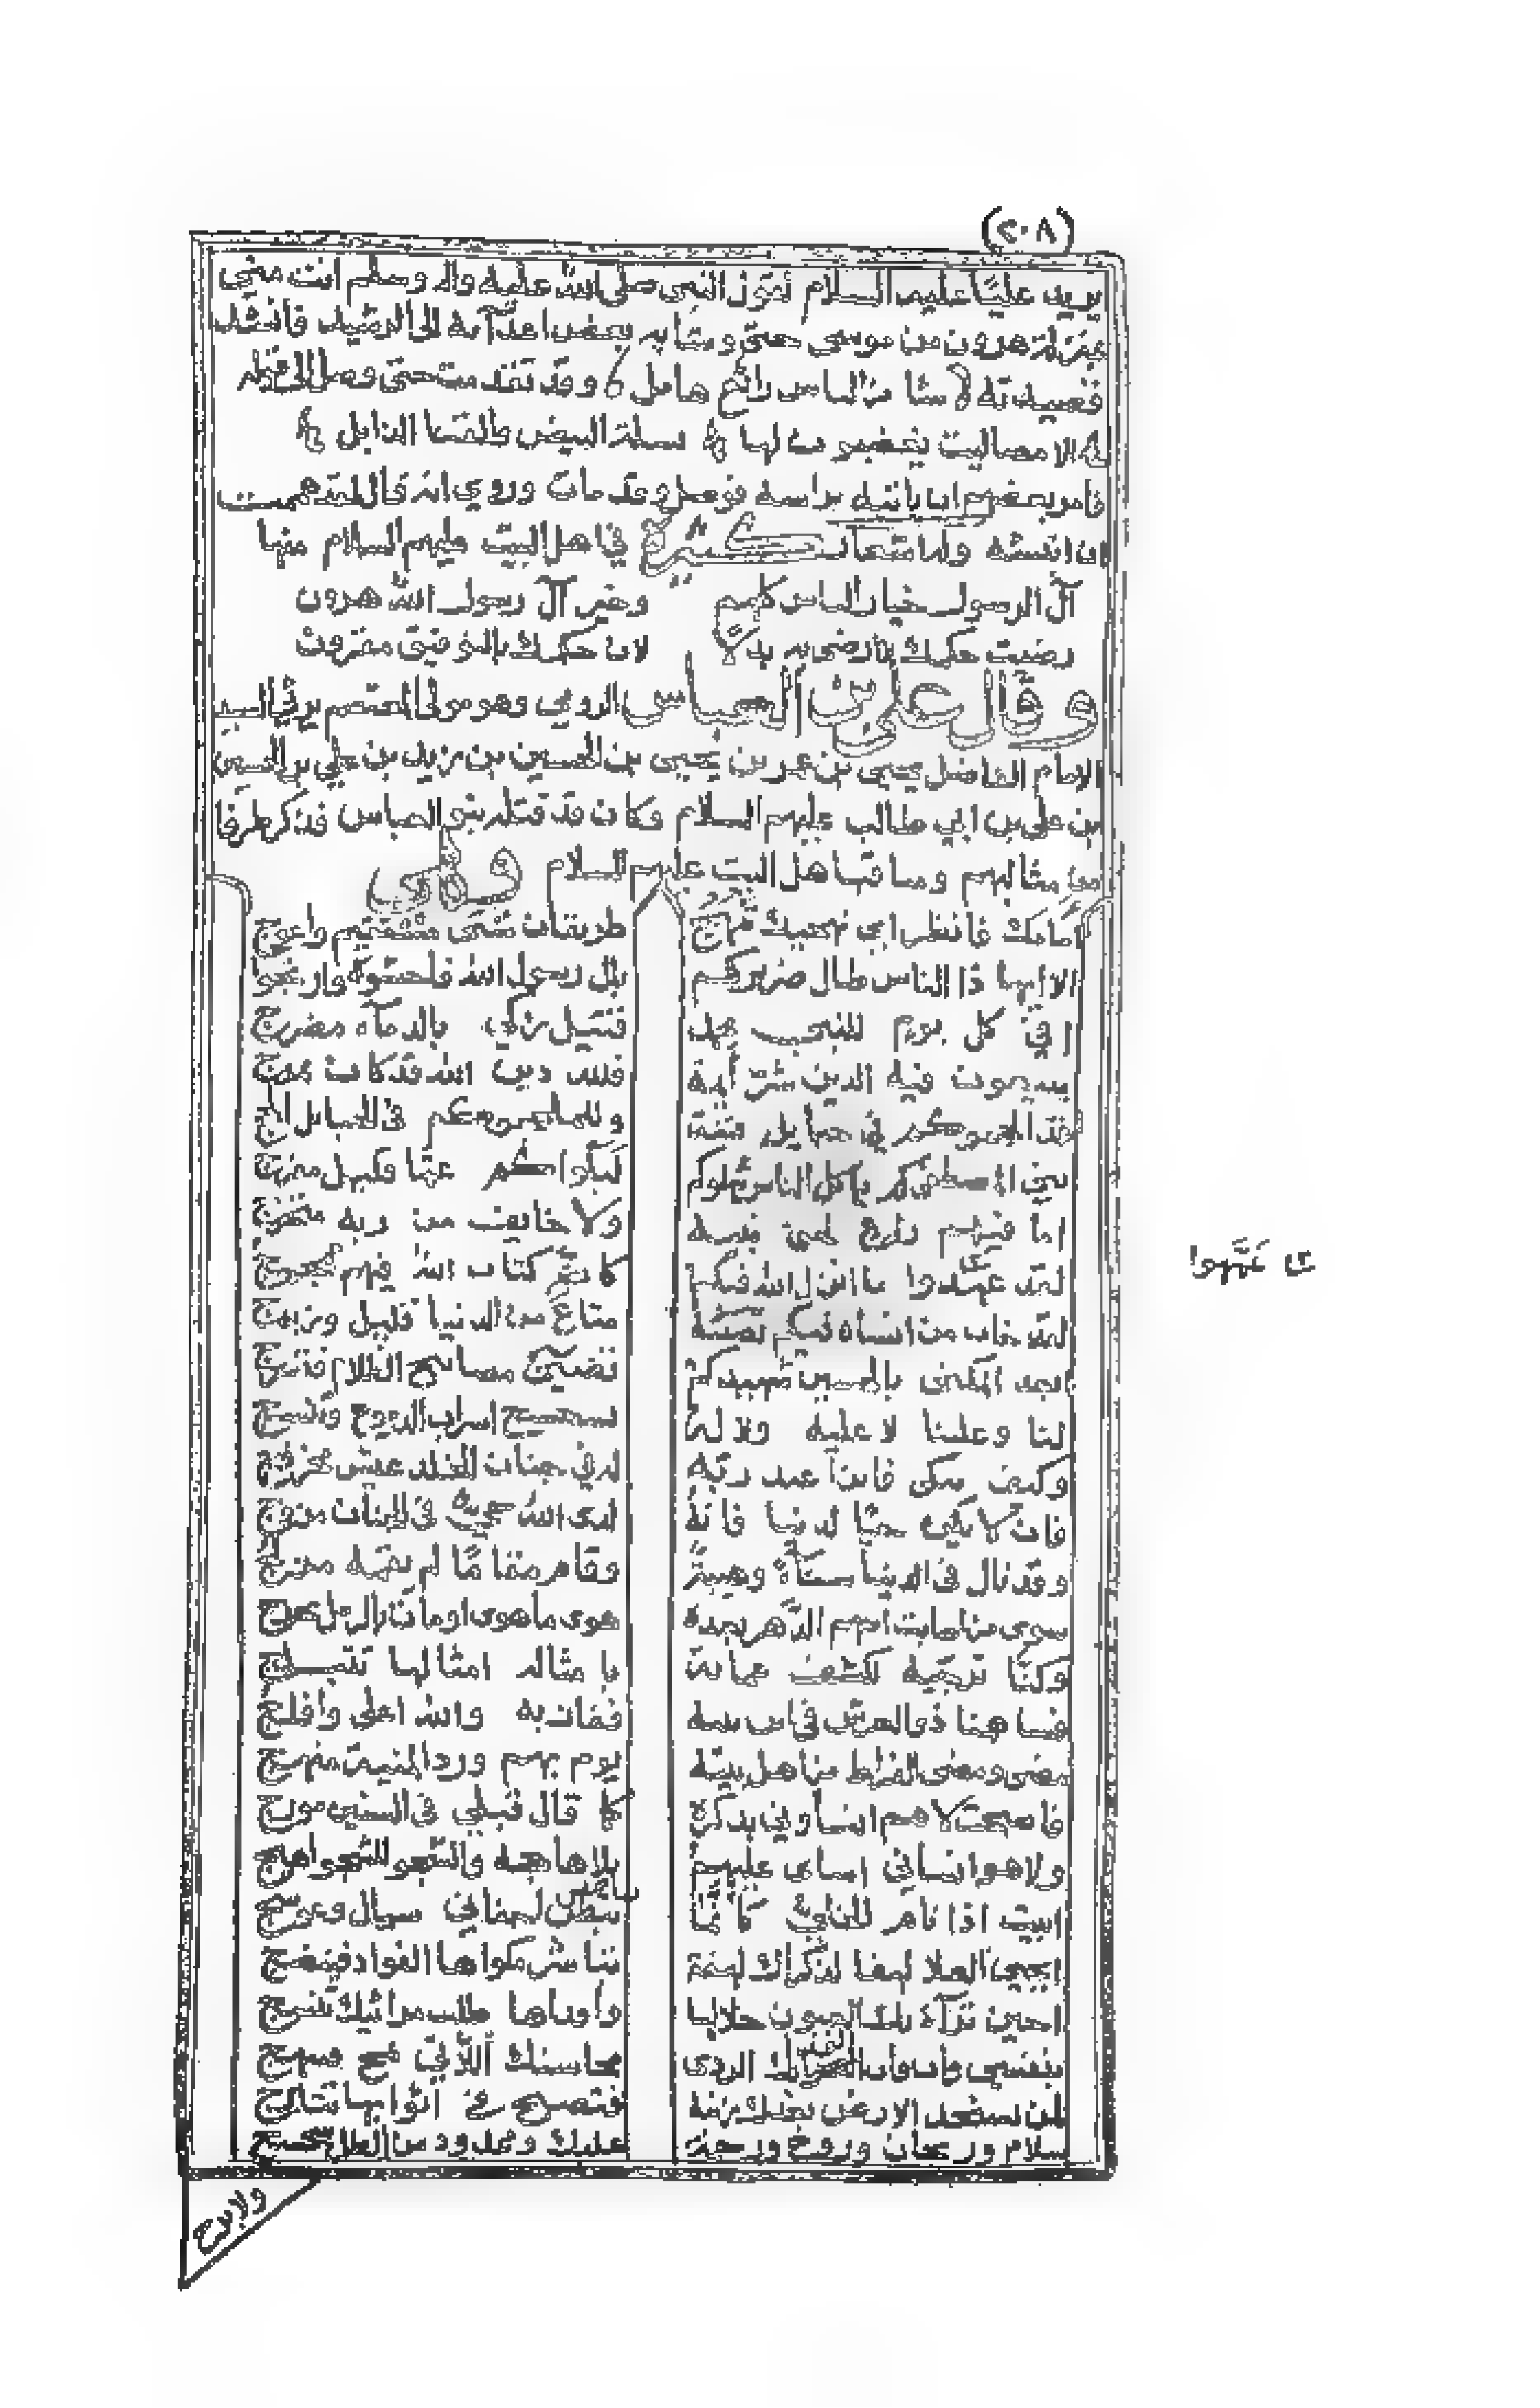 (٢٠٨)
يريد عليًا عليه السلام لقول النبي صلى الله عليه واله وسلم انت مني
بمنزلة هرون من موسى حتى وشا به بعض اعدآئه الى الرشيد فانشد
قصيدته شا من الناس راتع هامل وقد تقدمت حتى وصل الى قوله
الا مصاليت يغضبون لها بسلة البيض والقنا الذابل
فامر بعضهم ان ياتيه براسه فوصل وقد مات وروي انه قال لقد هممت
ان انبشه وله اشعار كثيرة في اهل البيت عليهم السلام منها
آل الرسول خيار الناس كلهم وخير آل رسول الله هرون
رضيت حكمك لا ارضى به بدلا لان حكمك بالتوفيق مقرون
وقال علي بن العباس الرومي وهو مولى المعتصم يرثي السيد
الامام الفاضل يحيى بن عمر بن يحيى بن الحسين بن زيد بن علي بن الحسين
بن علي بن ابي طالب عليهم السلام وكان قد قتله بنو العباس فذكر طرفا
من مثالبهم ومناقب اهل البيت عليهم السلام وهي
امامك فانظر اي نهجيك تنهج طريقان شتى مستقيم واعوج
الا ايهذا الناس طال ضريركم بآل رسول الله فاخشوا وارتجوا
افي كل يوم للنبي محمد قتيل زكي بالدمآء مضرج
يبيعون فيه الدين شر ائمة فلله دين الله قد كاد يمرج
لقد الحجوكم في حبايل فتنة وللملحجوكم في الحبايل الحج
بني المصطفى كم ياكل الناس شلوكم لبلواكم عما قليل مفرج
اما فيهم راع لحق نبيه ولا خايف من ربه يتحرج
لقد عمهوا ما انزل الله فيكم كان كتاب الله فيهم ممجمج
لقد خاب من انساه منكم نصيبه متاع من الدنيا قليل وزبرج
ابعد المكنى بالحسين شهيدكم تضيئ مصابيح الظلام فتسرج
لنا وعلينا لا عليه ولا له تسحسح اسراب الدموع وتنشج
وكيف نبكي فائزا عند ربه له في جنات الخلد عيش مخرفج
فان لا يكن حيا لدينا فانه لدى الله حي في الجنان مزوج
وقد نال في الدنيا سناء وصيتة وقام مقاما لم يقمه مزلج
سوى ما هوى او مات بالرمل
وكنا نرجيه لكشف عماية بامثاله امثالها تتبلج
فساهمنا ذو العرش في ابن نبيه ففاز به والله اعلى وافلج
مضى ومضى الفراط من اهل بيته يؤم بهم ورد المنية منهج
فاصبحت لا هم ابسأوني بذكره كما قال قبلي في البسوء مورج
ولا هو انساني اساي عليهم بلى هاجه والشجو للشجو اهيج
ابيت اذا نام الخلي كانما تبطن اجفاني سيال وعوسج
ايحيى العلا لهفا لذكراك لهفة يباشر مكواها الفواد فينضج
احين تراءتك العيون جلاءها واقذاءها طلت مراثيك تنسج
بنفسي وان فات الفداء بك الردى محاسنك اللآتي تمح فتنهج
لمن تستجد الارض بعدك زينة فتصبح في اثوابها تتبرج
سلام وريحان وروح ورحمة عليك وممدود من الظل سجسج
ولا برح